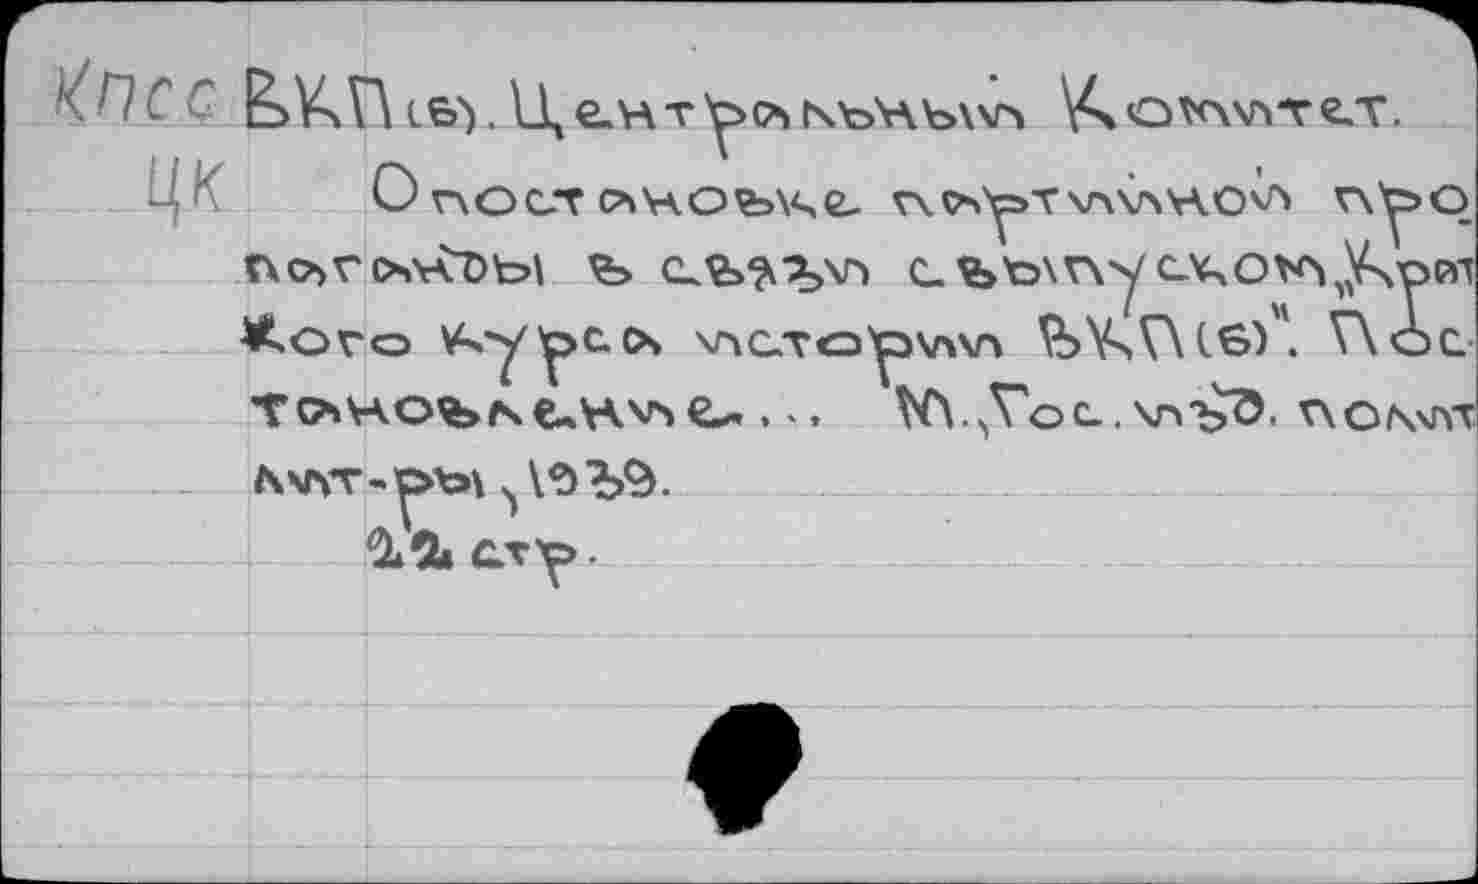 КПСС ВКП(б). Центральный Комитет.
ЦК О постановке партийной про
паганды в связи с выпуском „Крат
кого курса истории ВКП(б)". Пос
тановление... М., Гос. изд. полит
лит-ры, 1939.
22 стр.